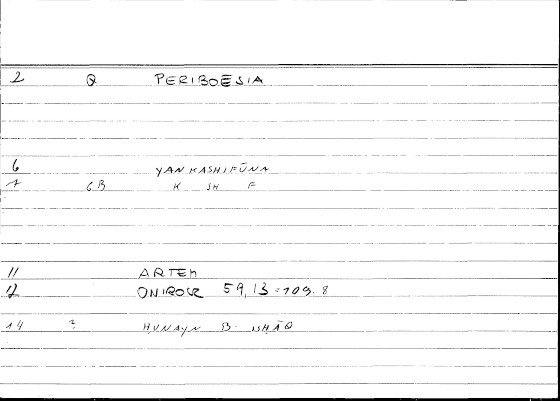 2 Q PERIBOĒSIA
6 YANKASHIFŪNA
7 GB K SH F
11 ARTEM
12 ONIROCR 59,13 = 109.8
14 ? HUNAYN B. ISHĀQ